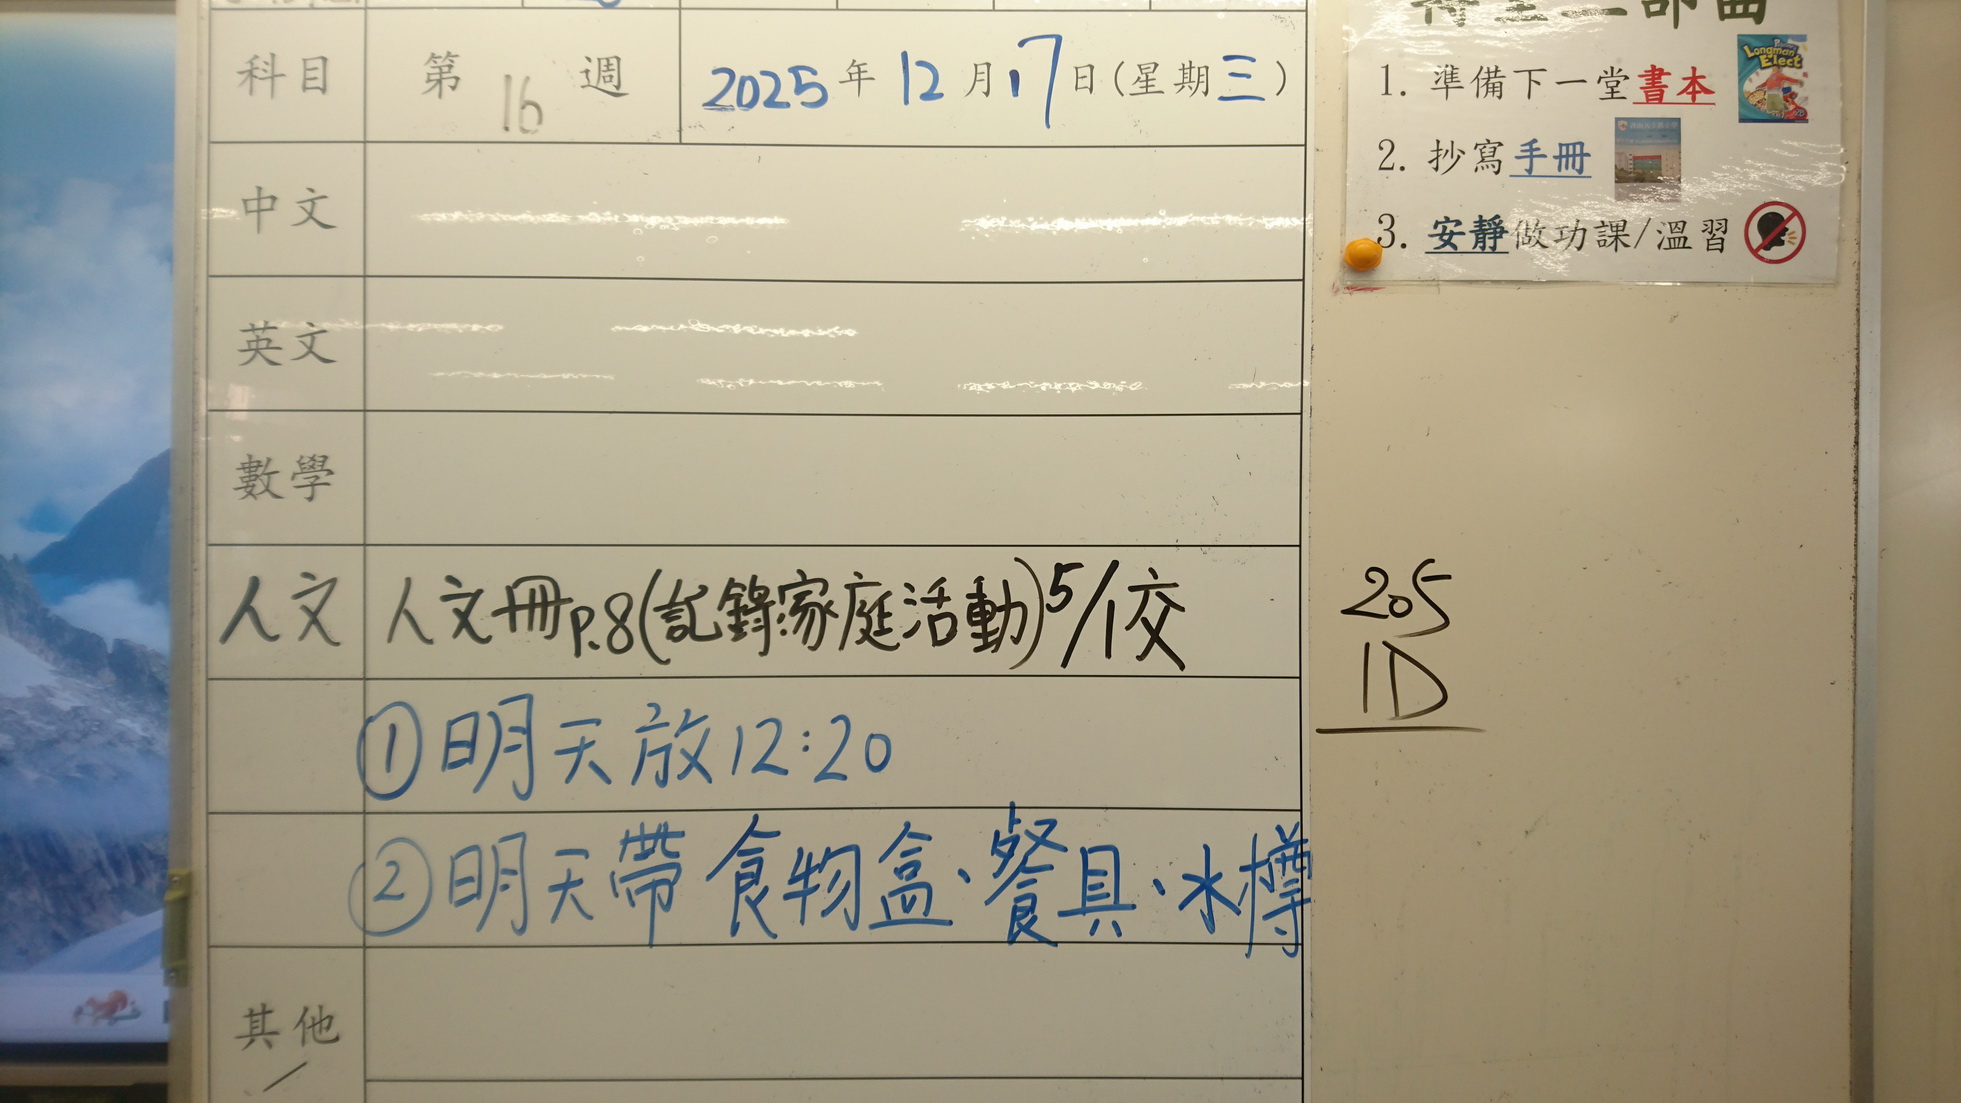 科目 第 16 週 2025 年 12 月 17 日(星期三)
中文
英文
數學
人文 人文冊P.8(記錄家庭活動)5/1交
①明天放12:20
②明天帶食物盒、餐具、水樽
其他
1. 準備下一堂書本
Longman Elect
2. 抄寫手冊
3. 安靜做功課/溫習
205
1D